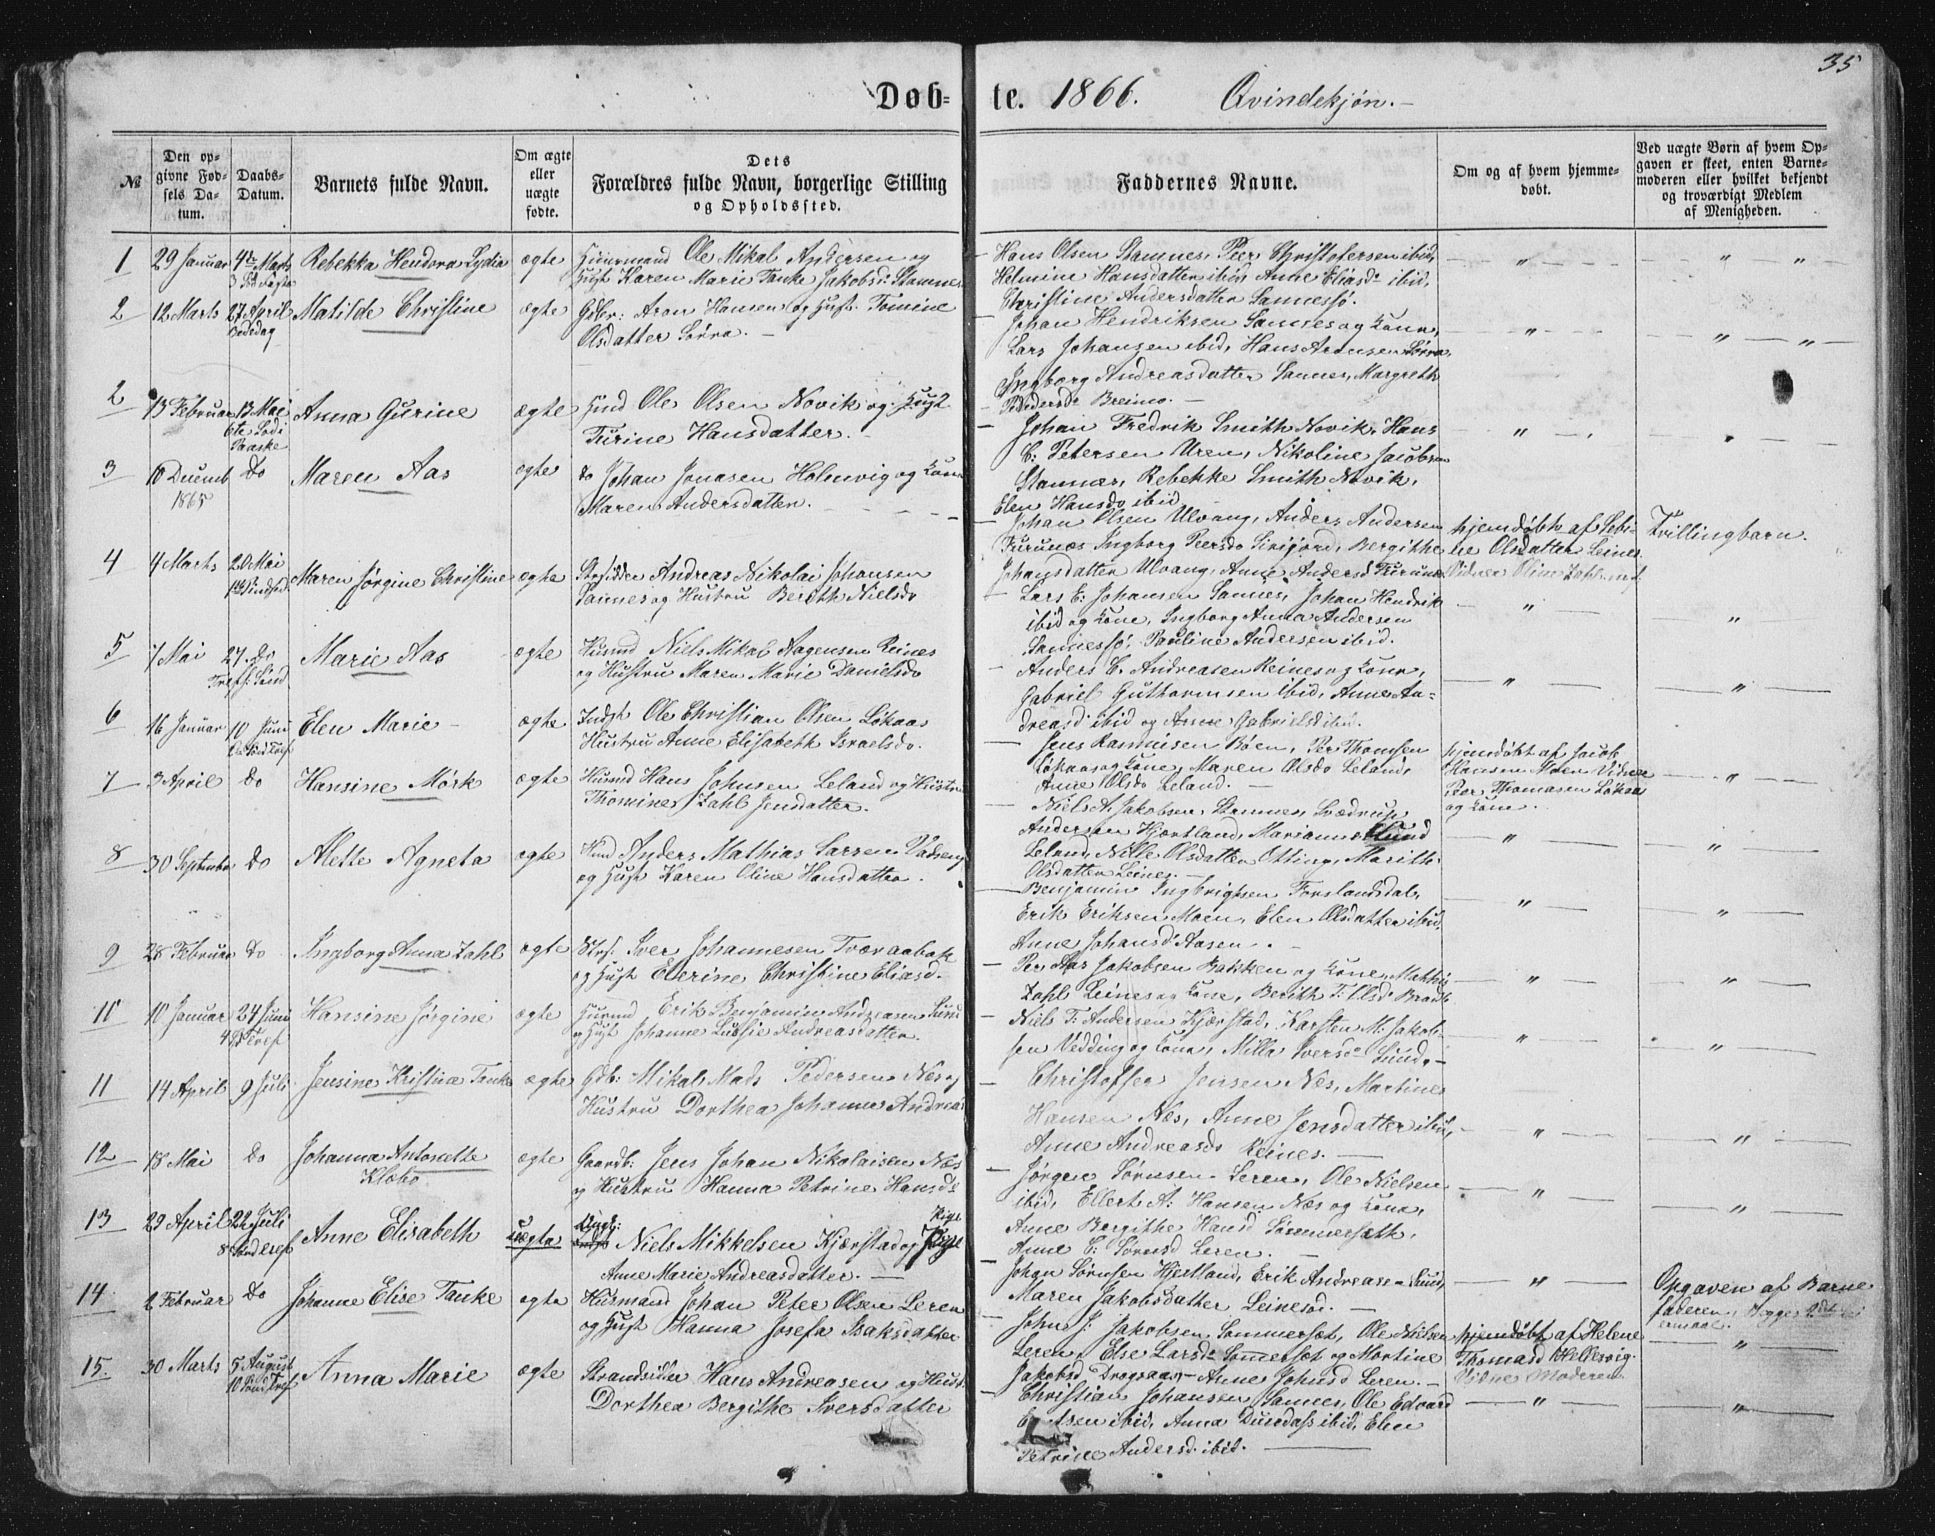 35
Døb- te. 1866. Qvindekjøn.
№
Den op-
givne Fød-
sels Da-
tum.
Daabs-
Datum.
Barnets fulde Navn.
Om ægte
eller
uægte
fødte.
Dets
Forældres fulde Navn, borgerlige Stilling
og Opholdssted.
Faddernes Navne.
Om og af hvem hjemme-
døbt.
Ved uægte Børn af hvem Op-
gaven er skeet, enten Barne-
moderen eller hvilket bekjendt
og troværdigt Medlem
af Menigheden.
1 29 Januar 4de Marts Rebekka Hendora Lydia ægte Huusmand Ole Mikal Andersen og
Hust. Karen Marie Tanke Jakobsd. Stamnes
Hans Olsen Stamnes, Peer Christofersen ibid,
Helmine Hansdatter ibid, Anne Eliasd ibid,
Christine Andersdatter Sannessø.
2 12 Marts 27 April Matilde Christine ægte Gdbr: Aron Hansen og Hust. Tomine
Bededag
Olsdatter Sørra. —
Johan Hendriksen Sannes og Kone,
Lars Johansen ibid, Hans Aronsen Sørra,
Ingborg Andreasdatter Sannes, Margreth
Pedersd Breimo. —
2 13 Februar 13 Mai Anna Gurine ægte Hmd Ole Olsen Novik og Hust
6te Søndi
Paaske
Turine Hansdatter. —
Johan Fredrik Smith Novik, Hans
C: Petersen Uren, Nikoline Jacobsen
Stamnes, Rebekke Smith Novik,
Elen Hansd ibid
3 10 Decemb do Maren Aas ægte do Johan Jonasen Holmvig og Kone
1865
Maren Andersdatter.
Johan Olsen Ulvang, Anders Andersen
Kurunæs, Ingborg Peersd , Bergithe
Johansdatter Ulvang, Anne Andersd
hjemdøbt af Sebi-
ne Olsdatter Leines.
Tvillingbarn.
4 4 Marts 20 Mai Maren Jørgine Christine ægte Strsidden Andreas Nikolai Johansen
Sannes og Hustru Berith Nielsd
Lars E: Johansen Sannes, Johan Hendrik
ibid og Kone, Ingborg Anna Andersen
Sannessø, Pauline Andersen ibid.
5 7 Mai 27 do Marie Aas ægte Husmd Niels Mikal Aagensen Reines
Tref: Sønd
og Hustru Maren Marie Danielsd
Anders C. Andreasen Reines og Kone,
Gabriel Guthormsen ibid, Anne An-
dreasd ibid og Anne Gabrielsd ibid.
6 16 Januar 10 Juni Elen Marie ægte Indst Ole Christian Olsen Løkaas
Hustru Anne Elisabeth Israelsd.
Jens Rasmusen Bøen, Per Thomsen
Løkaas og Kone, Maren Olsd Leland,
Anne Olsd Leland. —
hjemdøbt af Jacob
Hansen Moen Vidner
Peer Thomasen Løkaas
og Kone.
7 3 April do Hansine Mørk ægte Husmd Hans Johnsen Leland og Hustru
Thomine Zahl Jensdatter.
Niels A. Jakobsen, Stamnes,
Andersen Hjertland, Marianne Lund
Leland, Nille Olsdatter Otting, Marith
Olsdatter Leines. —
8 30 Septmber do Alette Agneta ægte Hmd Anders Mathias Larsen
og Hust Karen Oline Hansdatter.
Benjamin Ingbrigtsen Forslandsdal,
Erik Eriksen Moen, Elen Olsdatter ibid,
Anne Johansd Aasen. —
9 28 Februar do Ingborg Anna Zahl ægte Strs. Iver Johannesen Tværaabak
og Hust Elerine Christine Eliasd.
Per Aas Jakobsen Bakken og Kone, Mathis
Zahl Reines og Kone, Berith T: Olsd
10 10 Januar 24 Juni Hansine Jørgine ægte Husmd Erik Benjamin Andreasen Sund
4 S. Tref
og Hust Johanne Lusie Andreasdatter.
Niels T: Andersen Kjærstad, Karsten M. Jakob-
sen Vedding og Kone, Milla Iversd Sund. —
11 14 April 9 Juli Jensine Kristine Tanke ægte Gdb: Mikal Mads Pedersen Næs og
Hustru Dorthea Johanna Andreas
Christoffer Jensen Næs, Martines
Hansen Næs, Anne Jensdatter ibid,
Anne Andreasd Reines. —
12 18 Mai do Johanna Antonette ægte Gaardb: Jens Johan Nikolaisen Næs
Klæbo
og Hustru Hanna Petrine Hansd
Jørgen Sørensen Leren, Ole Nielsen
ibid, Ellert A: Hansen Næs og Kone,
Anne Bergithe Hansd Sømmersæth,
Anne C: Sørensd Leren. —
13 29 April 22 Juli Anne Elisabeth uægte Ungk: Niels Mikkelsen Kjærstad og Pige
Anne Marie Andreasdatter. —
Johan Sørensen Hjertland, Erik Andreasen Sund,
Maren Jakobsdatter Leinesod. —
Opgaven af Barne
faderen,
14 2 Februar do Johanne Elise Tanke ægte Husmand Johan Peter Olsen Leren
og Hust Hanna Josefa Isaksdatter
John J: Jakobsen Sommersæt, Ole Nielsen
Leren, Else Larsd Sommersæt og Martine
Jakobsd Drogsaas, Anne Johnsd Leren. —
hjemdøbt af Helene
Thomasd Hellesvig.
Vidne Moderen.
15. 30 Marts 5 August Anna Marie ægte Strandsidder Hans Andreasen og Hust.
Dorthea Bergithe Iversdatter
Christian Johansen Sannes, Ole Edvard
ibid, Anna Dundass ibid, Elen
Petrine Andersd. ibid. —